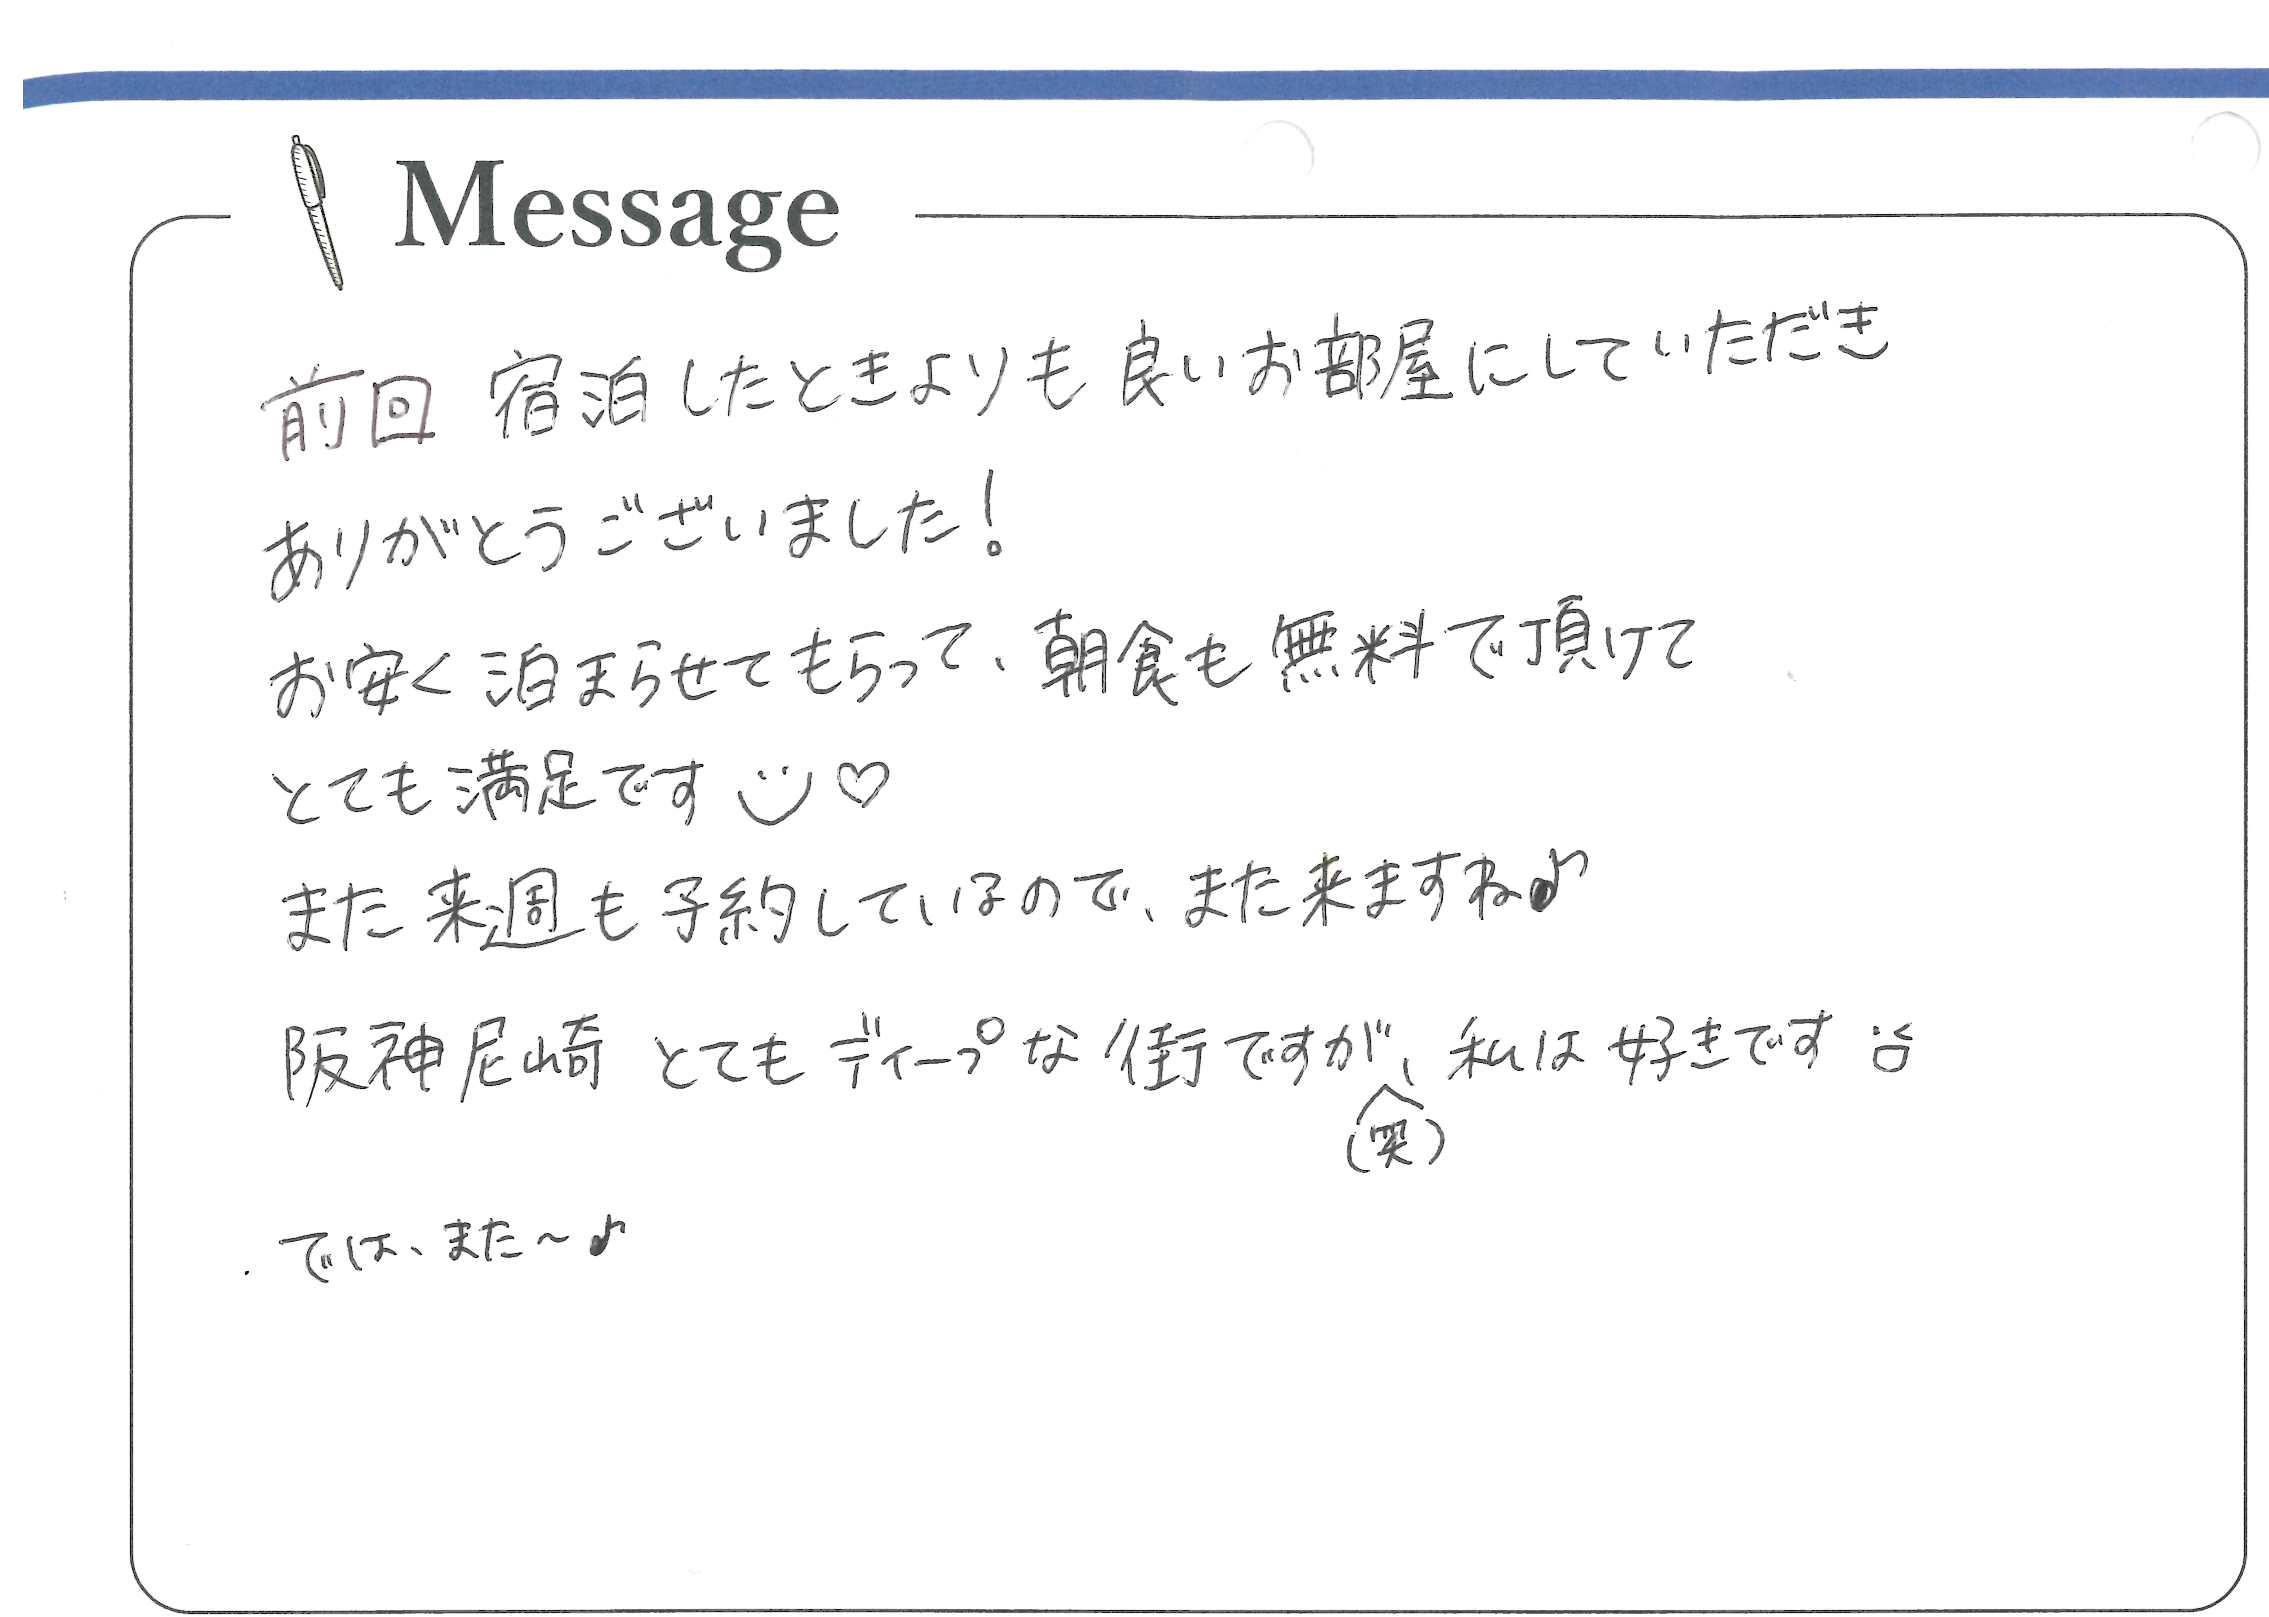 Message
前回 宿泊したときよりも 良いお部屋にしていただき
ありがとうございました！
お安く 泊まらせてもらって、朝食も 無料で頂けて
とても満足です ♡
また 来週も 予約しているので、また来ますね♪
阪神尼崎 とても ディープな 街ですが、私は好きです
(笑)
では、また〜♪